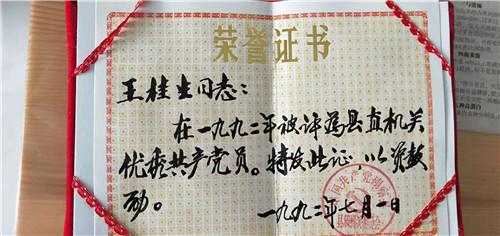 荣誉证书
王桂生同志：
在一九九二年被评为县直机关
优秀共产党员。特发此证，以资鼓
励。
一九九二年七月一日